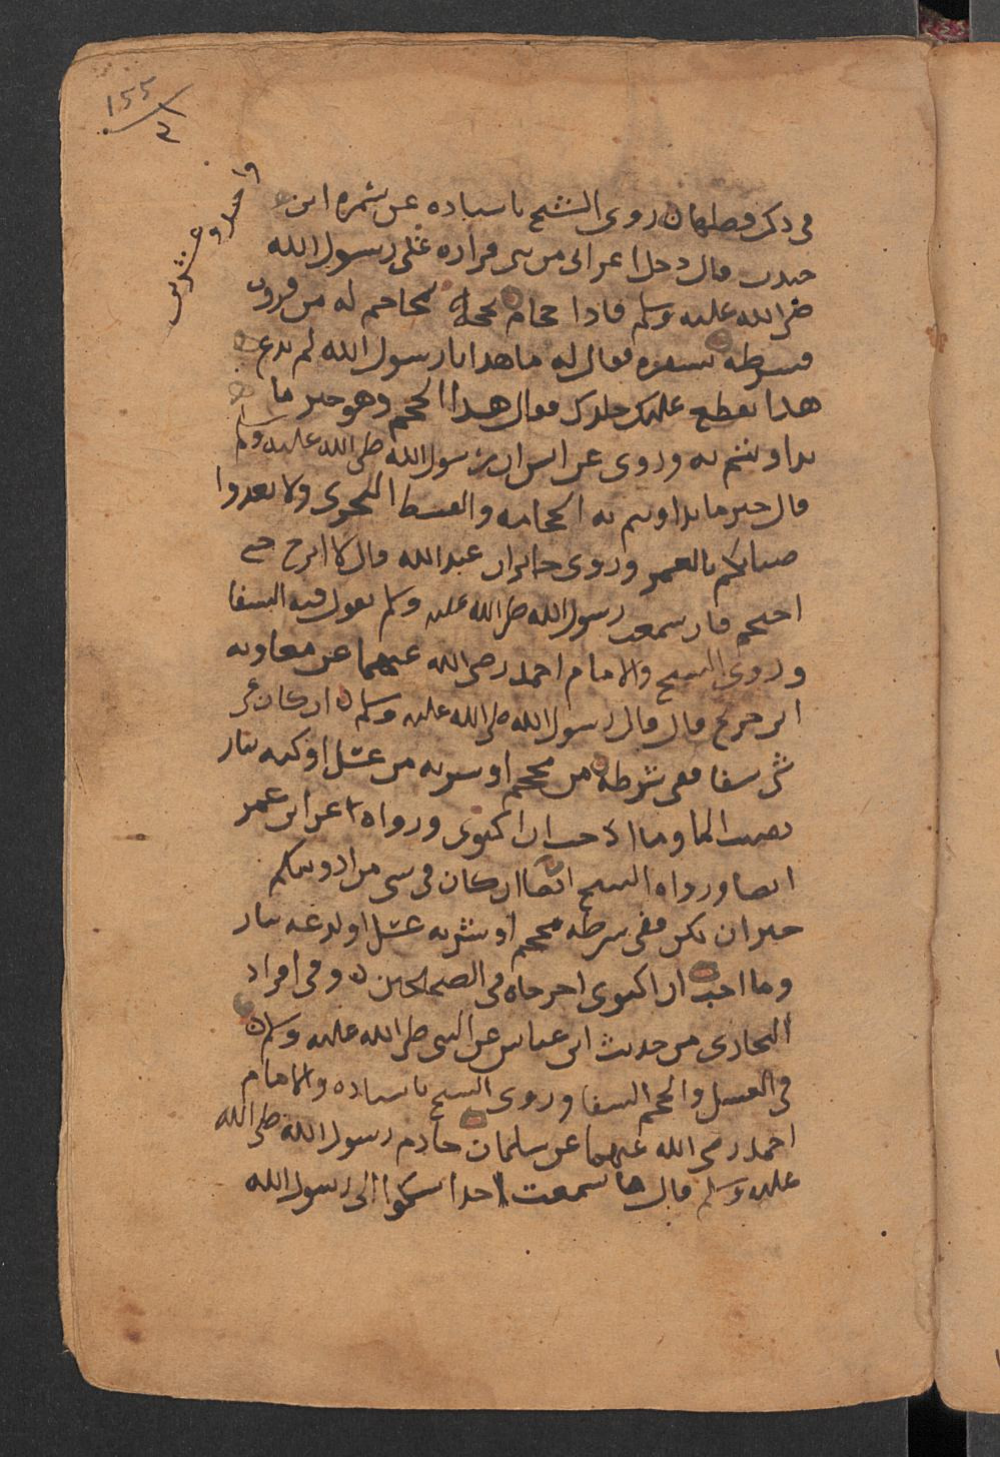 ١٥٥
٢
واحد وعشرين
في ذكر فضلها ن روى الشيخ باسناده عن سمره ابن
جندب قال دخل اعرابي من بني فزاره على رسول الله
صلى الله عليه وسلم فاذا حجام يحجمه بمحاجم له من قرون
فشرطه بشفره فقال له ما هذا يا رسول الله لم تدع
هذا يقطع عليك جلدك فقال هذا الحجم وهو خير ما
تداويتم به وروى عن انس ان رسول الله صلى الله عليه وسلم
قال خير ما تداويتم به الحجامه والقسط البحري ولا تعذبوا
صبيانكم بالغمز وروى جابر ابن عبد الله قال لا ابرح حتى
احتجم فان سمعت رسول الله صلى الله عليه وسلم يقول فيه الشفا
وروى الشيخ والامام احمد رضي الله عنهما عن معاويه
ابن خديج قال قال رسول الله صلى الله عليه وسلم ان كان في
شي شفا ففي شرطه من محجم او شربه من عسل او كيه بنار
تصيب الما وما احب ان اكتوى ورواه عن ابن عمر
ايضا ورواه الشيخ ايضا ان كان في شي من ادويتكم
خير ان يكن ففي شرطه محجم او شربه عسل او لدغه بنار
وما احب ان اكتوى اخرجاه في الصحيحين ن وفي افراد
البخاري من حديث ابن عباس عن النبي صلى الله عليه وسلم ن
في العسل والحجم الشفا وروى الشيخ باسناده والامام
احمد رضي الله عنهما عن سلمان خادم رسول الله صلى الله
عليه وسلم قال ما سمعت احدا يشكوا الى رسول الله